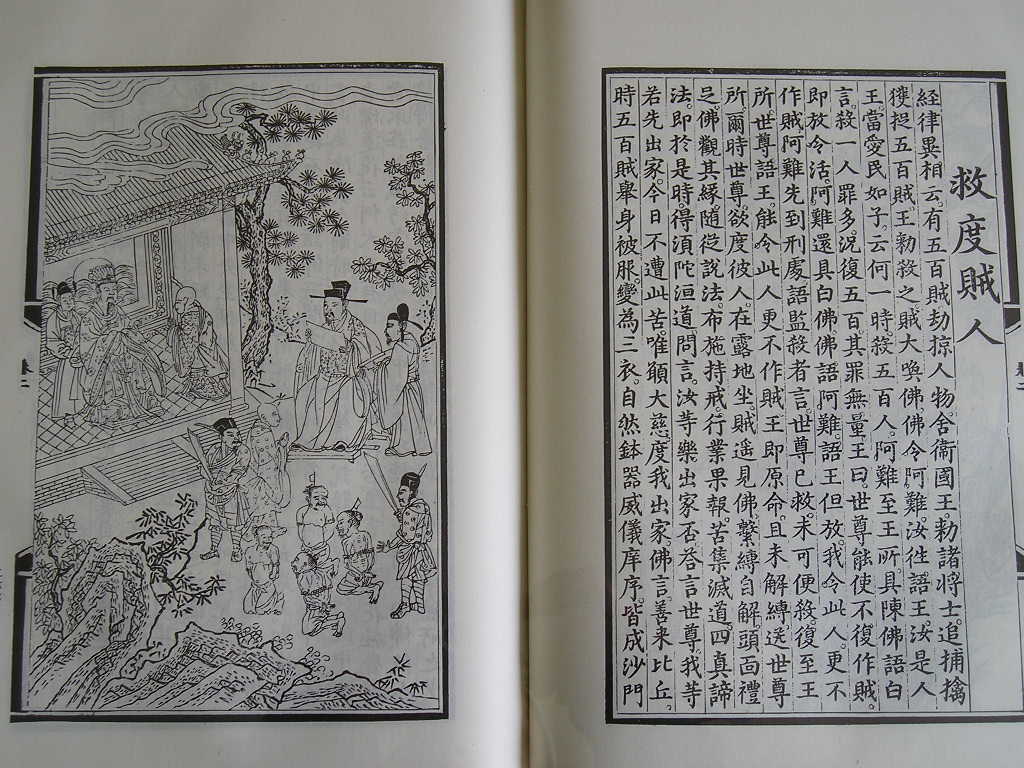 救度賊人
經律異相云。有五百賊劫掠人物。舍衞國王。勅諸將士。追捕擒
獲捉五百賊。王勅殺之。賊大喚佛。佛令阿難。汝往語王。汝是人
王。當愛民如子。云何一時。殺五百人。阿難至王所。具陳佛語。白
言。殺一人罪多。況復五百。其罪無量。王曰。世尊能使不復作賊。
即放令活。阿難還具白佛。佛語阿難。語王但放。我令此人。更不
作賊。阿難先到刑處。語監殺者言。世尊已救。未可便殺。復至王
所。世尊語王。能令此人。更不作賊。王即原命。且未解縛。送世尊
所。爾時世尊。欲度彼人。在露地坐。賊遥見佛。繫縛自解。頭面禮
足。佛觀其緣。隨從說法。布施持戒。行業果報。苦集滅道。四真諦
法。即於是時。得湏陀洹道。問言。汝等樂出家否。荅言世尊。我等
若先出家。今日不遭此苦。唯願大慈。度我出家。佛言善来比丘。
時五百賊。舉身被服。變為三衣。自然鉢器。威儀庠序。皆成沙門
卷二